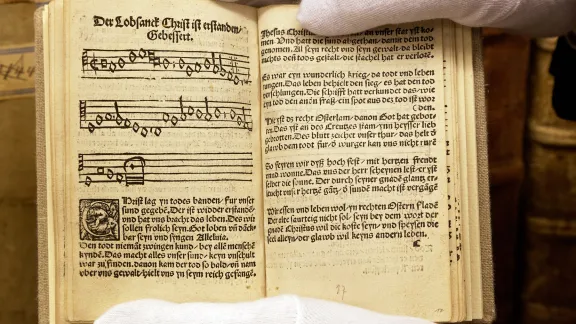 Der Lobsanck Christ ist erstanden/
Gebessert.
Christ lag yn todes banden/ fur unser
sund gegebē. Der ist widder erstandē
und hat uns bracht das leben. Des wir
sollen frolich seyn. Got loben uñ dāck-
bar seyn und syngen Alleluia.
Den todt niemāt zwingen kund/ bey allē mensche
kyndē. Das macht alles unser sunt/ keyn unschult
war zu finden. danon kam der tod so bald/ uñ nam
uber uns gewalt/ hielt uns yn seym reich gefangē.
Jhesus Christus
men. Und hatt die sund abgethan/ damit dem tod
genomen. Al seyn recht und seyn gewalt/ da bleibt
nichts den tods gestalt/ die stachel hat er verlorē.
Es war eyn wunderlich krieg/ da todt und leben
rungen. Das leben behielt den sieg/ es hat den tod
verschlungen. Die schrifft hatt verkundet das/ wie
eyn tod den andn fraß/ ein spot aus dez tod ist wor
(den.
Die yst dz recht Osterlam/ danon Got hat gebot-
ten. Das yst an des Creutzes stam/ ynn heysser lieb
gebrotten. Des blutt zeichet unser thur/ das helt d
glawb dem tod fur/ d wurger kan uns nicht rurē
So feyren wir dyß hoch fest/ mit hertzen freudt
und wonne. Das uns der herr scheynen lest/ er yst
selber die sonne. Der durch seyner gnadē glantz er-
leucht unsr hertzē gātz/ d sundē macht ist vergāgē
Wir essen und leben wol/ yn rechten Ostern fladē
Der alte saurteig nicht sol/ seyn bey dem wort der
gnadē Christus wil die koste seyn/ und speysen die
seel alleyn/ der glawb wil keyns andern leben.